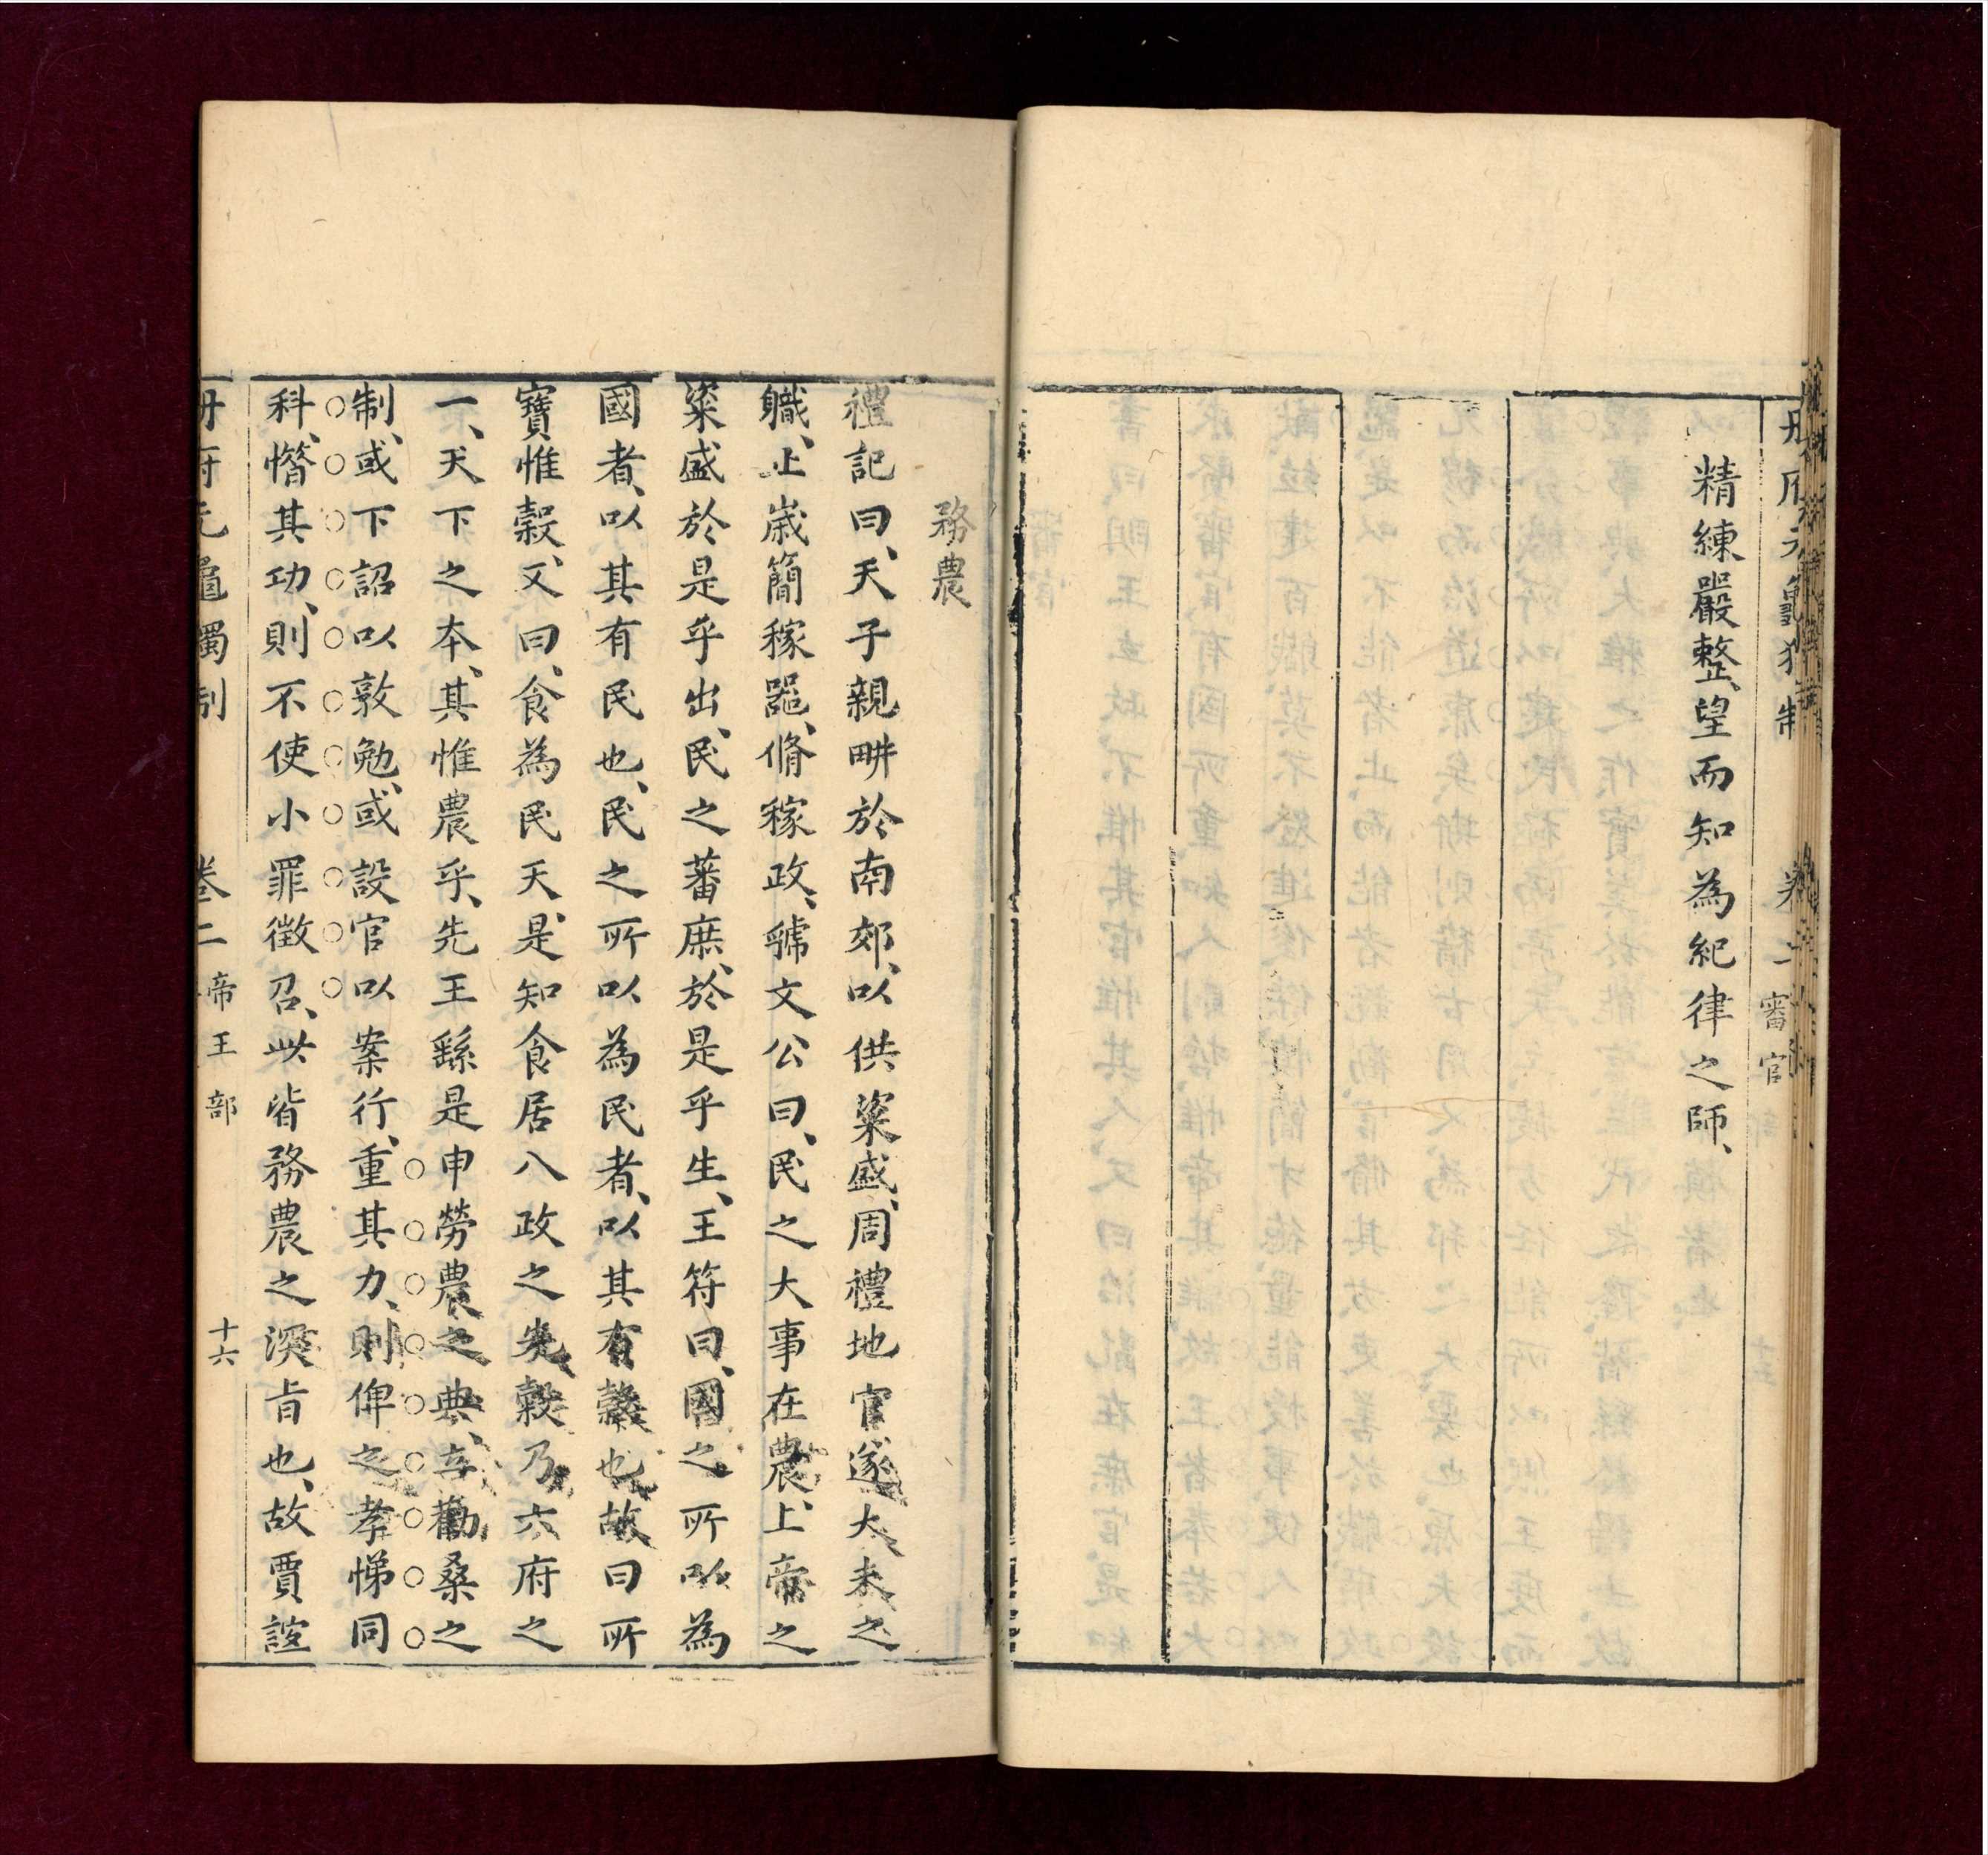 冊府元龜獨制 卷二 審官
精練嚴整、望而知為紀律之師、
務農
禮記曰、天子親畊於南郊、以供粢盛、周禮地官遂大夫之
職、止嵗簡稼噐、脩稼政、虢文公曰、民之大事在農、上帝之
粢盛於是乎出、民之蕃庶、於是乎生、王符曰、國之所以為
國者、以其有民也、民之所以為民者、以其有穀也、故曰所
寶惟穀、又曰、食為民天、是知食居八政之先、穀乃六府之
一、天下之本、其惟農乎、先王繇是申勞農之典、立勸桑之
制、或下詔以敦勉、或設官以案行、重其力、則俾之孝悌同
科、憯其功、則不使小罪徵召、此皆務農之深旨也、故賈誼
冊府元龜獨制 卷二 帝王部 十六